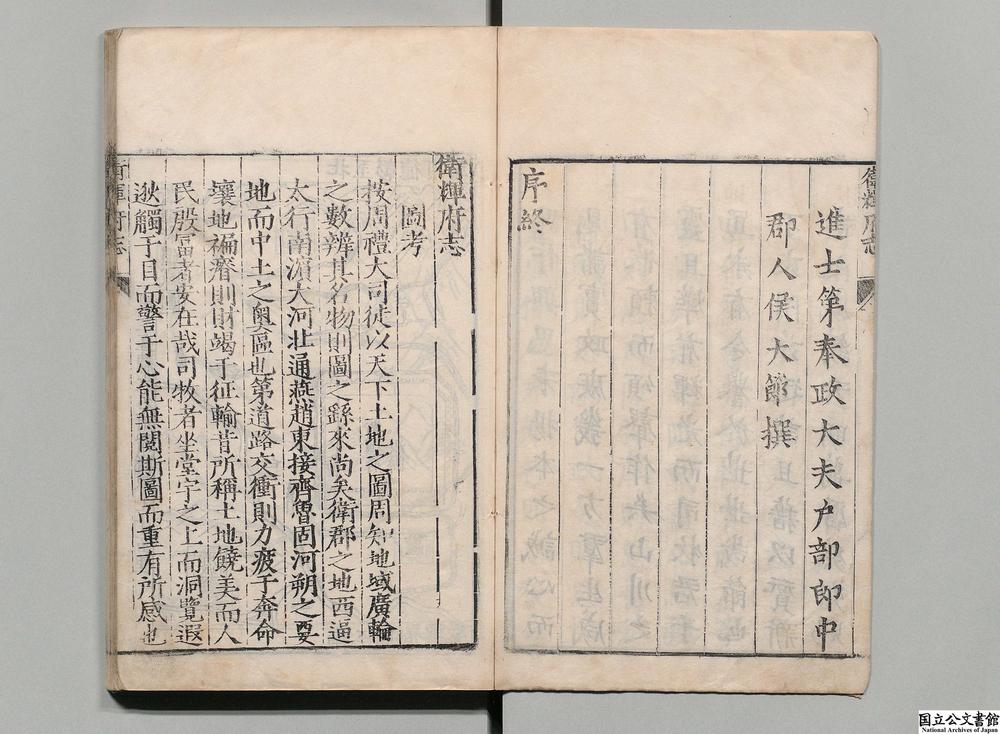 衛輝府志
進士第奉政大夫戸部郎中
郡人侯大節撰
序終
衛輝府志
圖考
按周禮大司徒以天下土地之圖周知地域廣輪
之數辨其名物則圖之繇來尚矣衛郡之地西逼
太行南濵大河北通燕趙東接齊魯固河朔之要
地而中土之奥區也第道路交衝則力疲于奔命
壤地褊瘠則財竭于征輸昔所稱土地饒美而人
民殷富者安在哉司牧者坐堂宇之上而洞覽遐
逖觸于目而警于心能無閱斯圖而重有所感也
衛輝府志
国立公文書館
National Archives of Japan